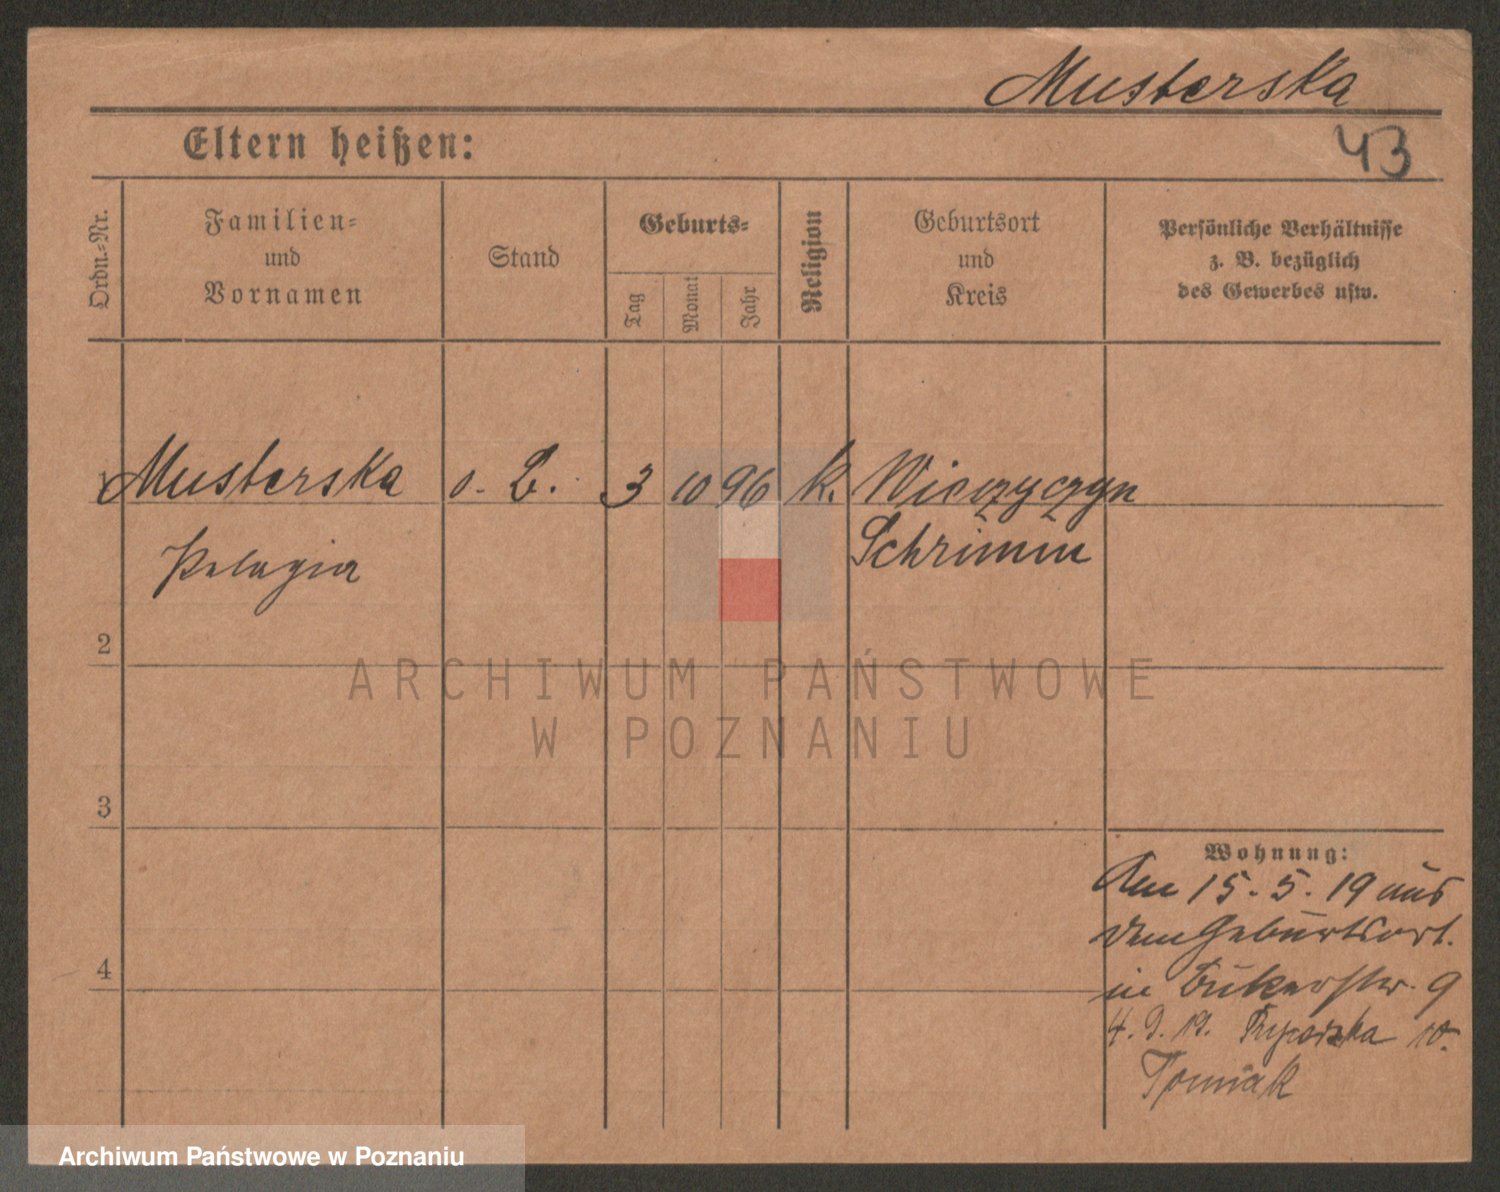 Musterska
43
Eltern heißen:
Ordn.=Nr.
Familien=
und
Vornamen
Stand
Geburts=
Tag
Monat
Jahr
Religion
Geburtsort
und
Kreis
Persönliche Verhältnisse
z. B. bezüglich
des Gewerbes usw.
1 Musterska o. B. 3 10 96 k. Wieszczyczyn
Pelagia Schrimm
2
3
4
Wohnung:
Am 15.5.19 aus
dem Geburtsort.
in Bukerstr. 9
4. 9. 19. 10.
Tomiak
ARCHIWUM PAŃSTWOWE
W POZNANIU
Archiwum Państwowe w Poznaniu